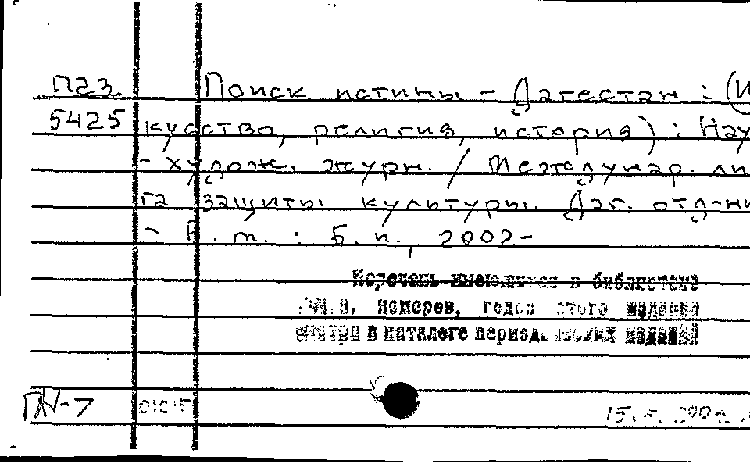 П23 Поиск истины - Дагестан : (Ис
5425 кусство, религия, история) : Нау
- худож. журн. / Междунар. ли
га защиты культуры. Даг. отд-ни
- Б. м. : Б. и., 2002-
Перечень имеющихся в библиотеке
номеров, годов этого издания
смотри в каталоге периодических изданий
ГЖ-7